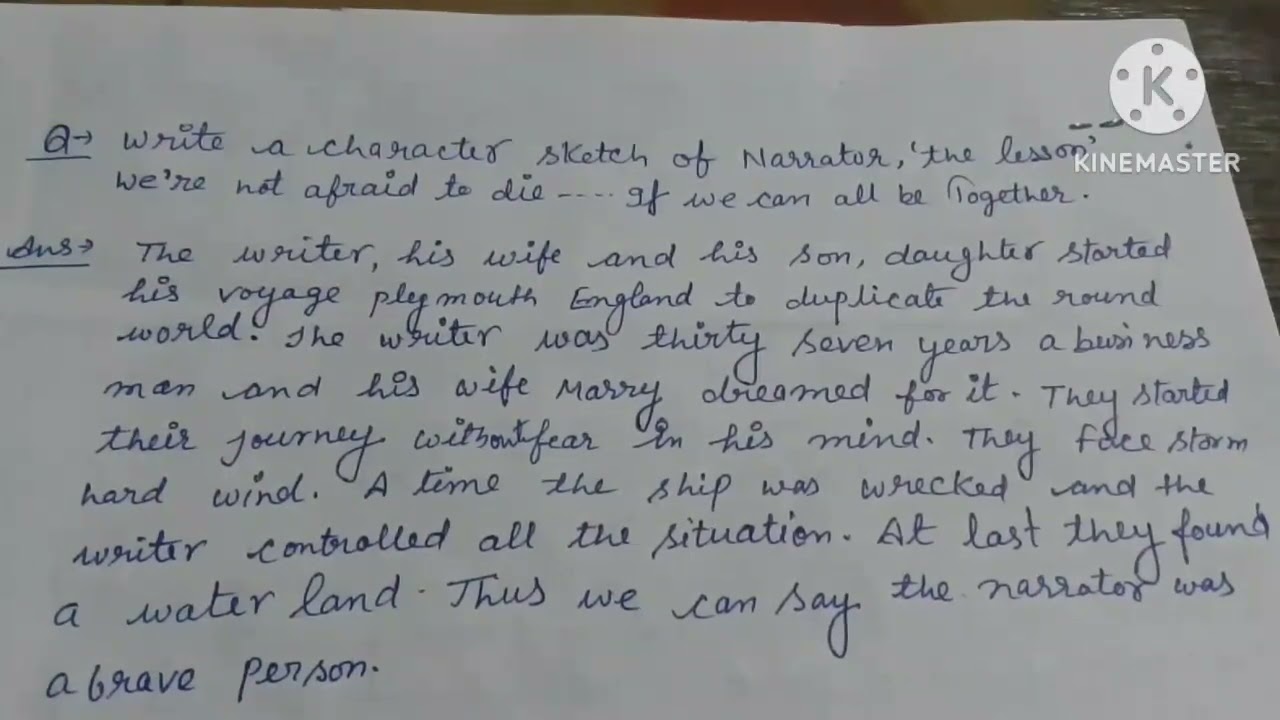 Q→ Write a character sketch of Narrator, 'the lesson'
We're not afraid to die ---- If we can all be Together.
Ans→ The writer, his wife and his son, daughter started
his voyage plymouth England to duplicate the round
world. The writer was thirty seven years a business
man and his wife Marry dreamed for it. They started
their journey without fear in his mind. They face storm
hard wind. A time the ship was wrecked and the
writer controlled all the situation. At last they found
a water land. Thus we can say the narrator was
a brave person.
KINEMASTER